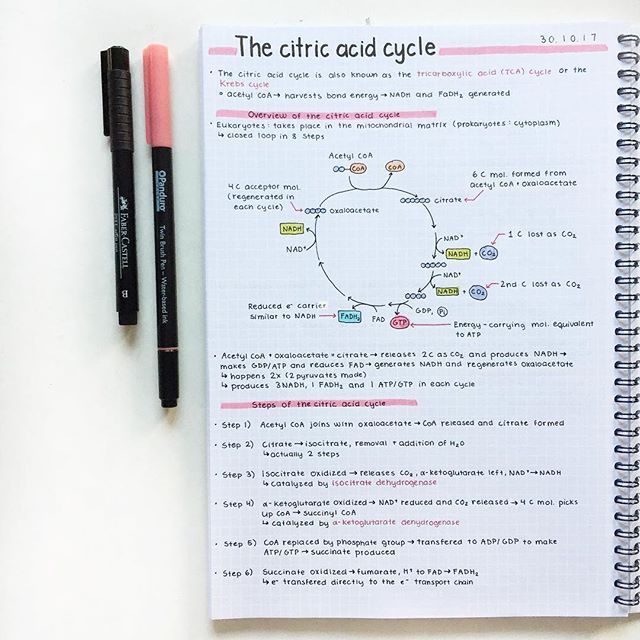 The citric acid cycle
30.10.17
· The citric acid cycle is also known as the tricarboxylic acid (TCA) cycle or the
Krebs cycle
acetyl CoA → harvests bond energy → NADH and FADH₂ generated
Overview of the citric acid cycle
· Eukaryotes: takes place in the mitochondrial matrix (prokaryotes: cytoplasm)
↳ closed loop in 8 steps
Acetyl CoA
CoA
CoA
4 C acceptor mol.
(regenerated in
each cycle)
oxaloacetate
6 C mol. formed from
acetyl CoA + oxaloacetate
citrate
NADH
NAD⁺
NAD⁺
NADH + CO₂
1 C lost as CO₂
NAD⁺
NADH + CO₂
2nd C lost as CO₂
Reduced e⁻ carrier
similar to NADH
FADH₂
FAD
GTP
GDP, Pi
Energy-carrying mol. equivalent
to ATP
· Acetyl CoA + oxaloacetate = citrate → releases 2C as CO₂ and produces NADH →
makes GDP/ATP and reduces FAD → generates NADH and regenerates oxaloacetate
↳ happens 2x (2 pyruvates made)
↳ produces 3 NADH, 1 FADH₂ and 1 ATP/GTP in each cycle
Steps of the citric acid cycle
· Step 1) Acetyl CoA joins with oxaloacetate → CoA released and citrate formed
· Step 2) Citrate → isocitrate, removal + addition of H₂O
↳ actually 2 steps
· Step 3) Isocitrate oxidized → releases CO₂, α-ketoglutarate left, NAD⁺ → NADH
↳ catalyzed by isocitrate dehydrogenase
· Step 4) α-ketoglutarate oxidized → NAD⁺ reduced and CO₂ released → 4 C mol. picks
up CoA → succinyl CoA
↳ catalyzed by α-ketoglutarate dehydrogenase
· Step 5) CoA replaced by phosphate group → transfered to ADP/GDP to make
ATP/GTP → succinate produced
· Step 6) Succinate oxidized → fumarate, H⁺ to FAD → FADH₂
↳ e⁻ transfered directly to the e⁻ transport chain
FABER-CASTELL
B
Panduro
Twin Brush Pen - Water-based ink